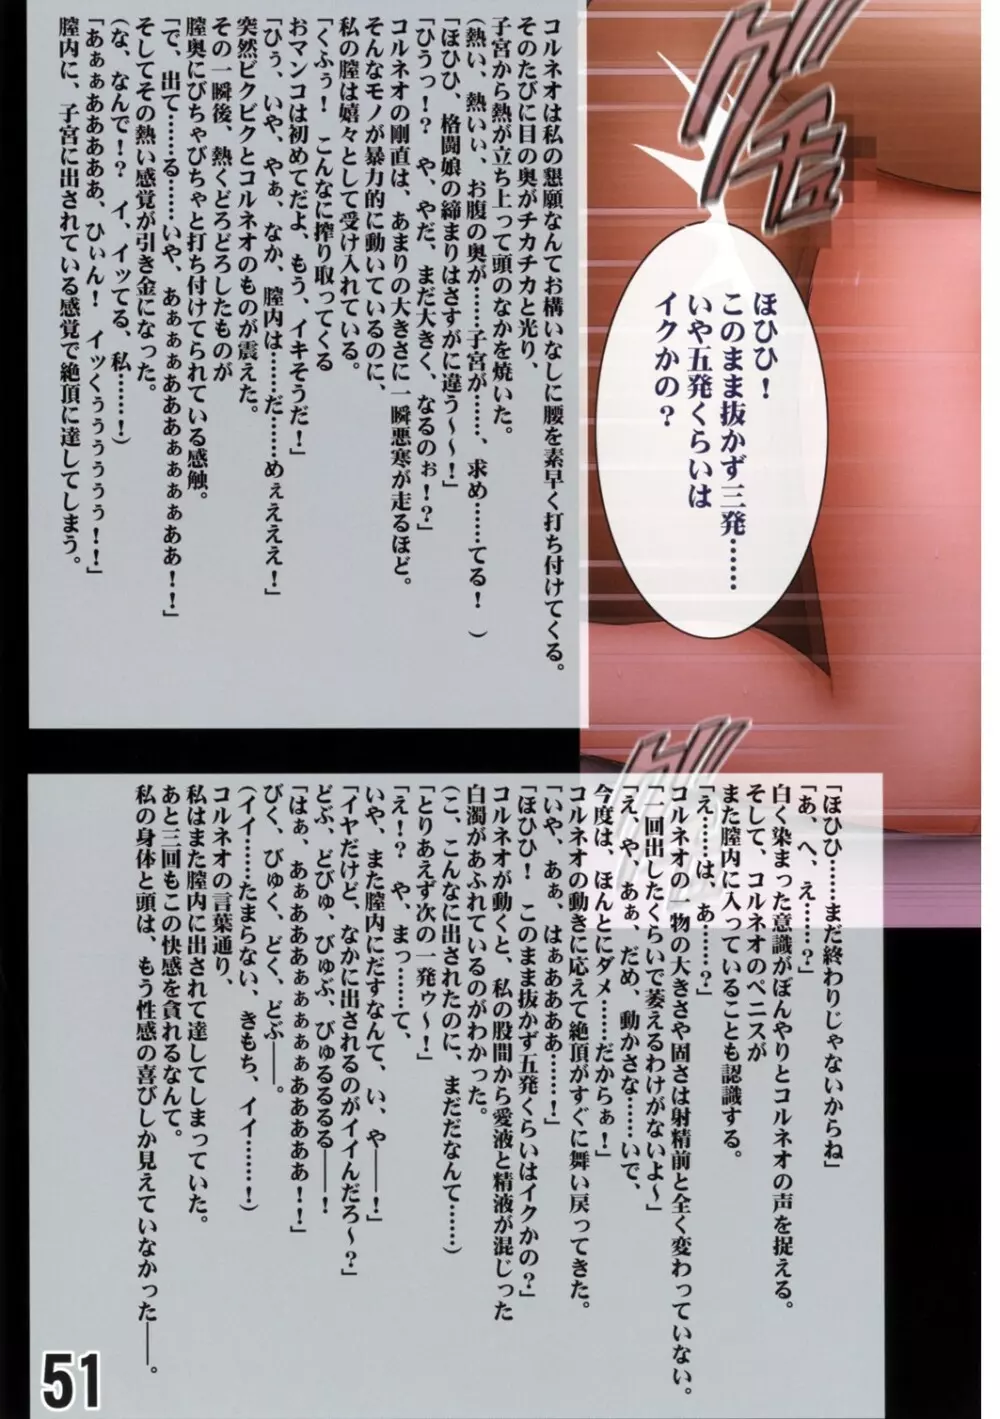 グチュ
ほひひ！
このまま抜かず三発……
いや五発くらいは
イクかの？
コルネオは私の懇願なんてお構いなしに腰を素早く打ち付けてくる。
そのたびに目の奥がチカチカと光り、
子宮から熱が立ち上って頭のなかを焼いた。
（熱い、熱いぃ、お腹の奥が……子宮が……、求め……てる！　）
「ほひひ、格闘娘の締まりはさすがに違う～～！」
「ひうっ！？　や、やだ、まだ大きく、なるのぉ！？」
コルネオの剛直は、あまりの大きさに一瞬悪寒が走るほど。
そんなモノが暴力的に動いているのに、
私の膣は嬉々として受け入れている。
「くふぅ！　こんなに搾り取ってくる
おマンコは初めてだよ、もう、イキそうだ！」
「ひぅ、いや、やぁ、なか、膣内は……だ……めぇえええ！」
突然ビクビクとコルネオのものが震えた。
その一瞬後、熱くどろどろしたものが
膣奥にびちゃびちゃと打ち付けてられている感触。
「で、出て……る……いや、あぁぁぁあああぁぁぁぁああ！！」
そしてその熱い感覚が引き金になった。
（な、なんで！？　イ、イッてる、私……！）
「あぁぁあああああ、ひぃん！　イッくぅぅぅぅぅ！！」
膣内に、子宮に出されている感覚で絶頂に達してしまう。
「ほひひ……まだ終わりじゃないからね」
「あ、へ、え……？」
白く染まった意識がぼんやりとコルネオの声を捉える。
そして、コルネオのペニスが
また膣内に入っていることも認識する。
「え……は、あ……？」
コルネオの一物の大きさや固さは射精前と全く変わっていない。
「一回出したくらいで萎えるわけがないよ～」
「え、や、あぁ、だめ、動かさな……いで、
今度は、ほんとにダメ……だからぁ！」
コルネオの動きに応えて絶頂がすぐに舞い戻ってきた。
「いや、あぁ、はぁあああああ……！」
「ほひひ！　このまま抜かず五発くらいはイクかの？」
コルネオが動くと、私の股間から愛液と精液が混じった
白濁があふれているのがわかった。
（こ、こんなに出されたのに、まだだなんて……）
「とりあえず次の一発ゥ～！」
「え！？　や、まっ……て、
いや、また膣内にだすなんて、い、や――！」
「イヤだけど、なかに出されるのがイイんだろ～？」
どぷ、どびゅ、びゅぶ、びゅるるるる――！
「はぁ、あぁあああぁぁぁぁぁあああああ！！」
びく、びゅく、どく、どぷ――。
（イイ……たまらない、きもち、イイ……！）
コルネオの言葉通り、
私はまた膣内に出されて達してしまっていた。
あと三回もこの快感を貪れるなんて。
私の身体と頭は、もう性感の喜びしか見えていなかった――。
グチュ
51